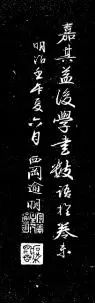 嘉其益後學書數語於卷末
明治壬午夏六月 西岡逾明